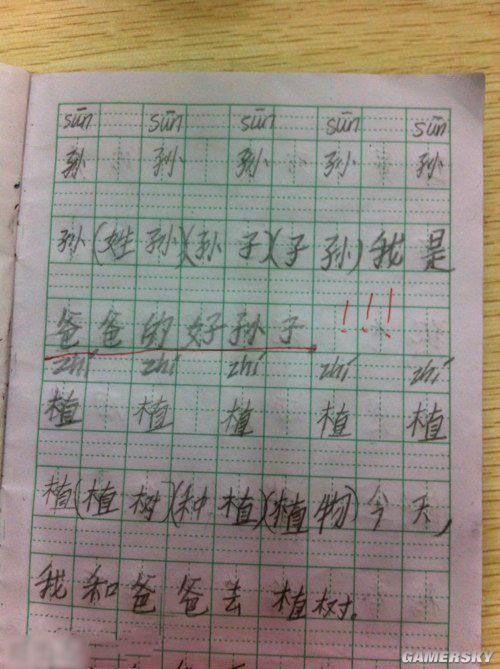 sūn sūn sūn sūn sūn
孙 孙 孙 孙 孙
孙(姓孙)(孙子)(子孙)我是
爸爸的好孙子。!!!
zhí zhí zhí zhí zhí
植 植 植 植 植
植(植树)(种植)(植物)今天,
我和爸爸去植树。
GAMERSKY